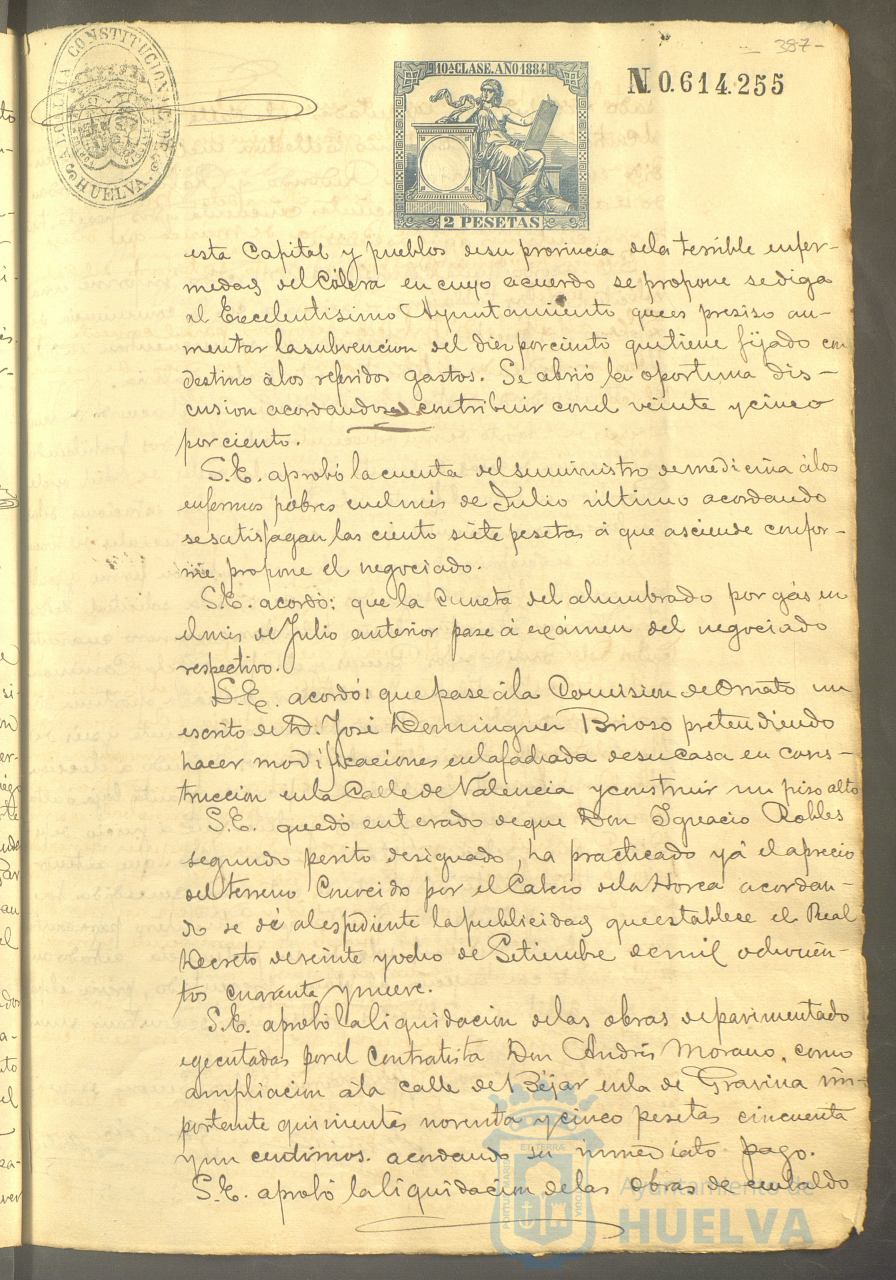 387-
ALCALDIA CONSTITUCIONAL DE
HUELVA.
10ª CLASE. AÑO 1884
N.0.614.255
2 PESETAS
esta Capital y pueblos de su provincia de la terrible enfer-
medad del Cólera en cuyo acuerdo se propone se diga
al Excelentisimo Ayuntamiento que es presiso au-
mentar la subvencion del diez por ciento que tiene fijado con
destino á los referidos gastos. Se abrió la oportuna dis-
cusion acordandose contribuir con el veinte y cinco
por ciento.
S.E. aprobó la cuenta del suministro de medicina á los
enfermos pobres en el mes de Julio último acordando
se satisfagan las ciento siete pesetas á que asciende confor-
me propone el negociado.
S.E. acordó: que la cuneta del alumbrado por gás en
el mes de Julio anterior pase á exámen del negociado
respectivo.
S.E. acordó: que pase á la Comision de Ornato un
escrito de D. José Dominguez Brioso pretendiendo
hacer modificaciones en la fachada de su casa en cons-
truccion en la Calle de Valencia y construir un piso alto
S.E. quedó enterado de que Don Ignacio Robles
segundo perito designado, ha practicado yá el aprecio
del terreno conocido por el Cabezo de la Horca acordan-
do se dé al espediente la publicidad que establece el Real
Decreto de veinte y ocho de Setiembre de mil ochocien-
tos cuarenta y nueve.
S.E. aprobó la liquidacion de las obras de pavimentado
egecutadas por el Contratista Don Andrés Morano, como
ampliacion á la calle de Béjar en la de Gravina im-
portante quinientas noventa y cinco pesetas cincuenta
y un centimos. acordando su inmediato pago.
S.E. aprobó la liquidacion de las obras de embaldo
Ayuntamiento de
HUELVA